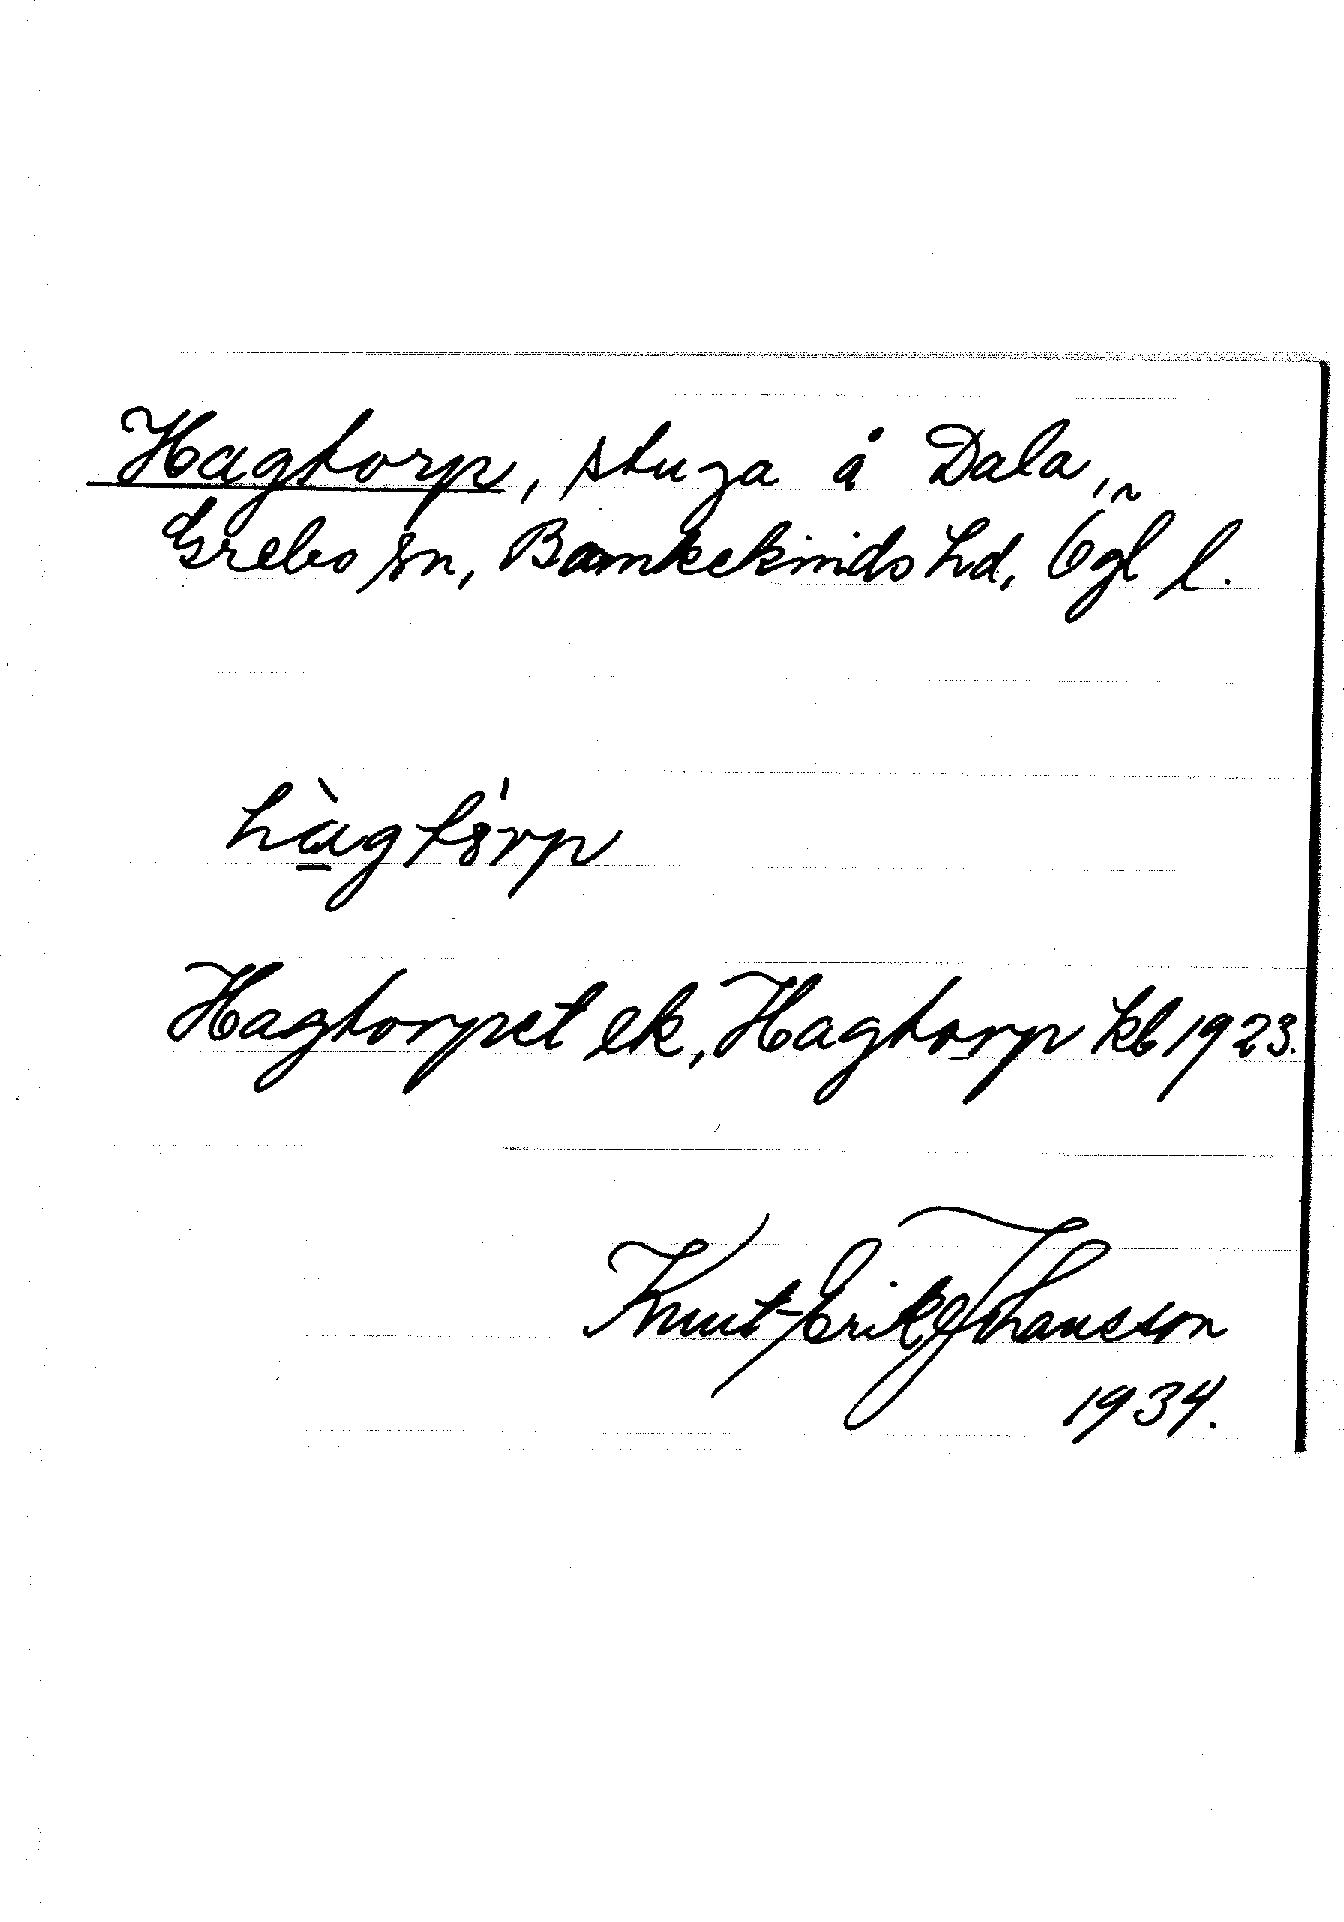 Hagtorp, stuga å Dala,
Grebo sn, Bankekinds hd, Ögl l.
hàgtó̤rp
Hagtorpet ek, Hagtorp kb 1923.
Knut-Erik Johansson
1934.